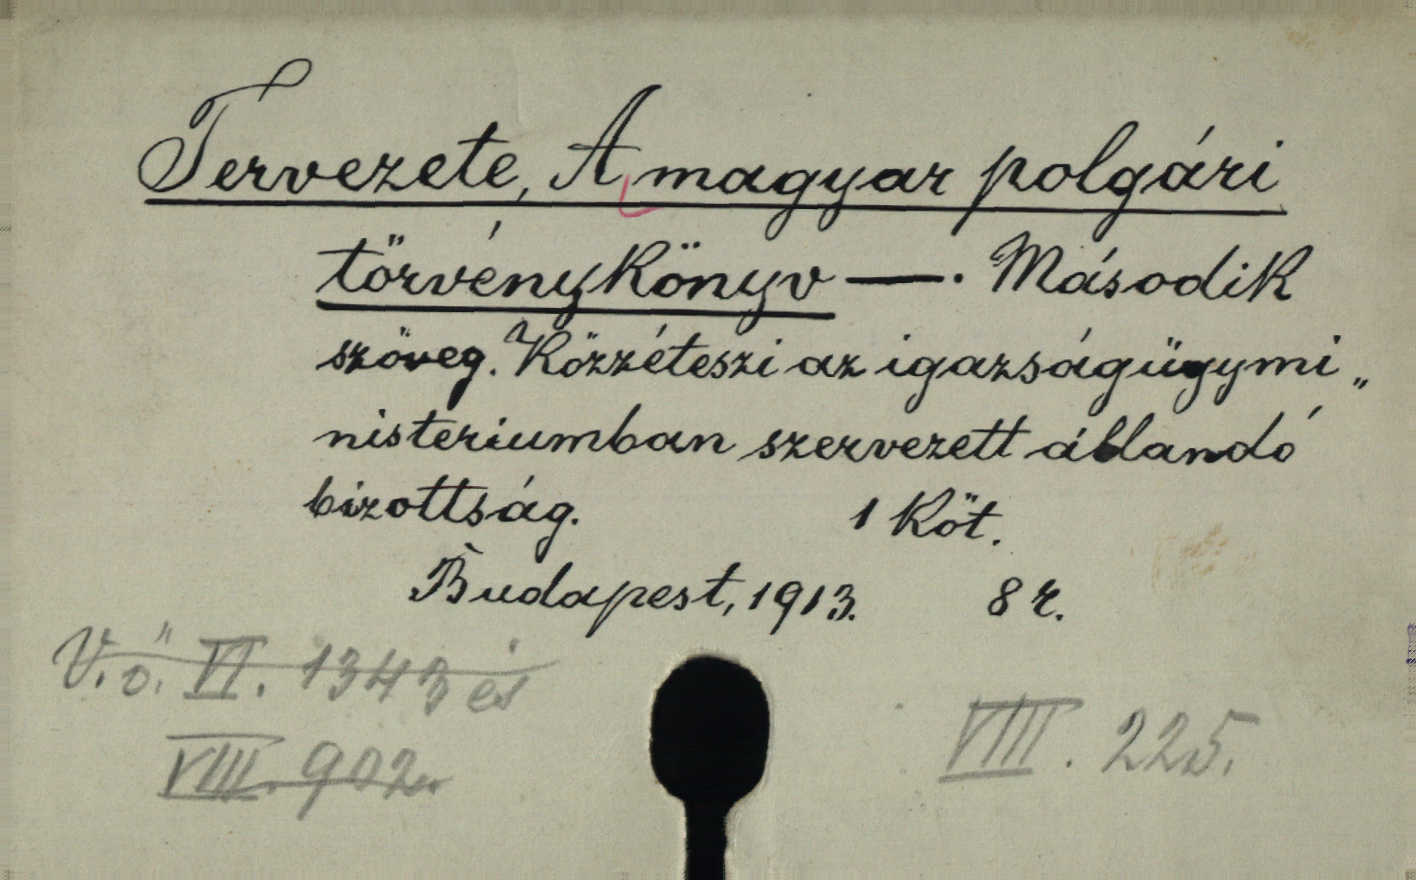 Tervezete, A magyar polgári
törvénykönyv —. Második
szöveg. Közzéteszi az igazságügymi„
niszteriumban szervezett állandó
bizottság. 1 Köt.
Budapest, 1913. 8 r.
V. ö. VI. 1343 és
VIII. 902.
VIII. 225.